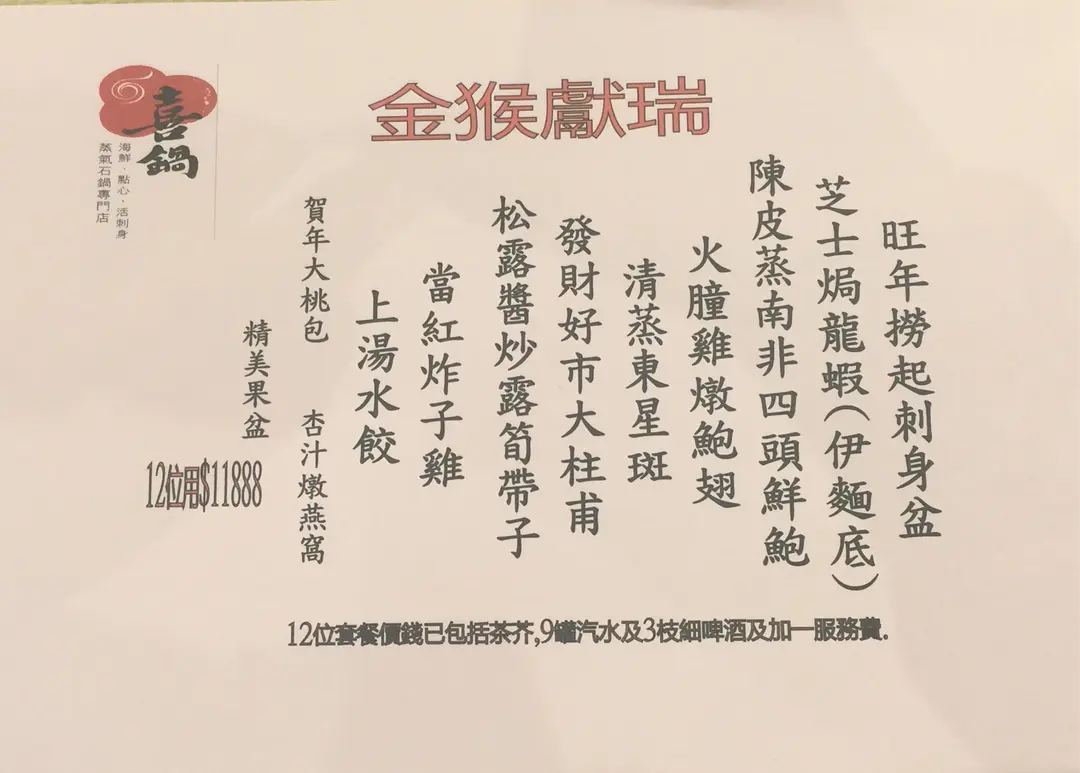 喜鍋
海鮮．點心．活刺身
蒸氣石鍋專門店
金猴獻瑞
旺年撈起刺身盆
芝士焗龍蝦(伊麵底)
陳皮蒸南非四頭鮮鮑
火腫雞燉鮑翅
清蒸東星斑
發財好市大柱甫
松露醬炒露筍帶子
當紅炸子雞
上湯水餃
賀年大桃包 杏汁燉燕窩
精美果盆
12位用$11888
12位套餐價錢已包括茶芥,9罐汽水及3枝細啤酒及加一服務費.